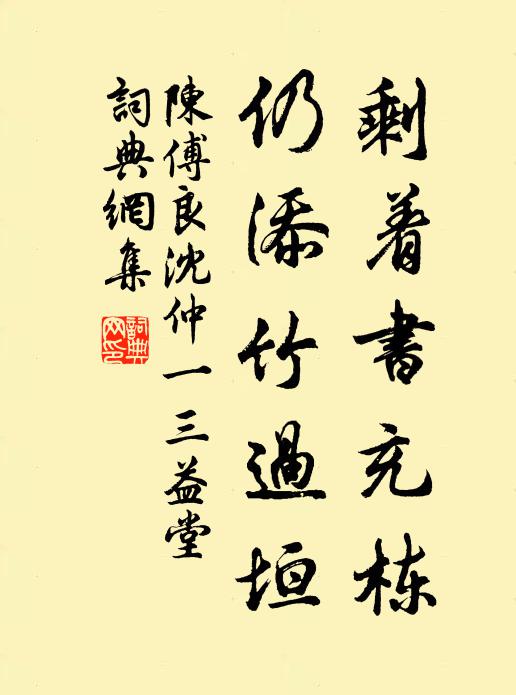 剩着書充栋
仍添竹過垣
陳傅良沈仲一三益堂
詞典網集
詞典网印